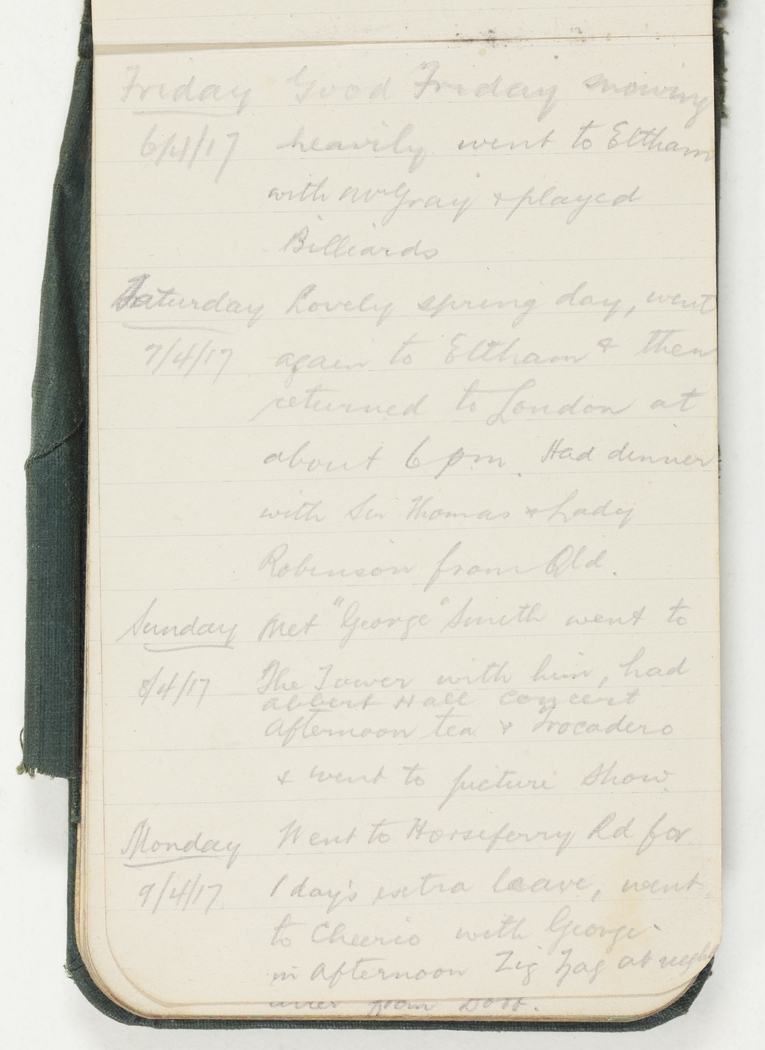 Friday Good Friday snowing
6/4/17 heavily went to Eltham
with Mr Gray & played
Billiards
Saturday Lovely spring day, went
7/4/17 again to Eltham & then
returned to London at
about 6 pm. Had dinner
with Sir Thomas & Lady
Robinson from Qld.
Sunday Met "George" Smith went to
8/4/17 The Tower with him, had
albert Hall concert
afternoon tea & Trocadero
& went to picture show.
Monday Went to Horseferry Rd for
9/4/17 1 day's extra leave, went
to Cheerio with George
in afternoon Zig Zag at night
from